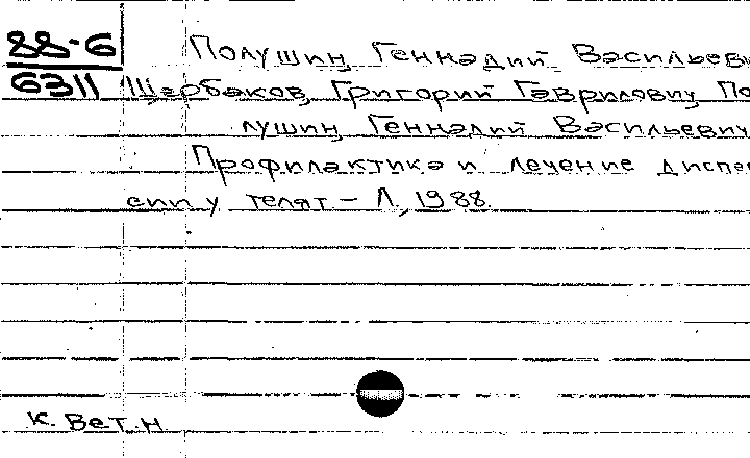 88-6
6311
Полушин, Геннадий Васильеви
Щербаков, Григорий Гаврилович, По
лушин, Геннадий Васильевич
Профилактика и лечение диспеп
сии у телят - Л., 1988.
К. вет. н